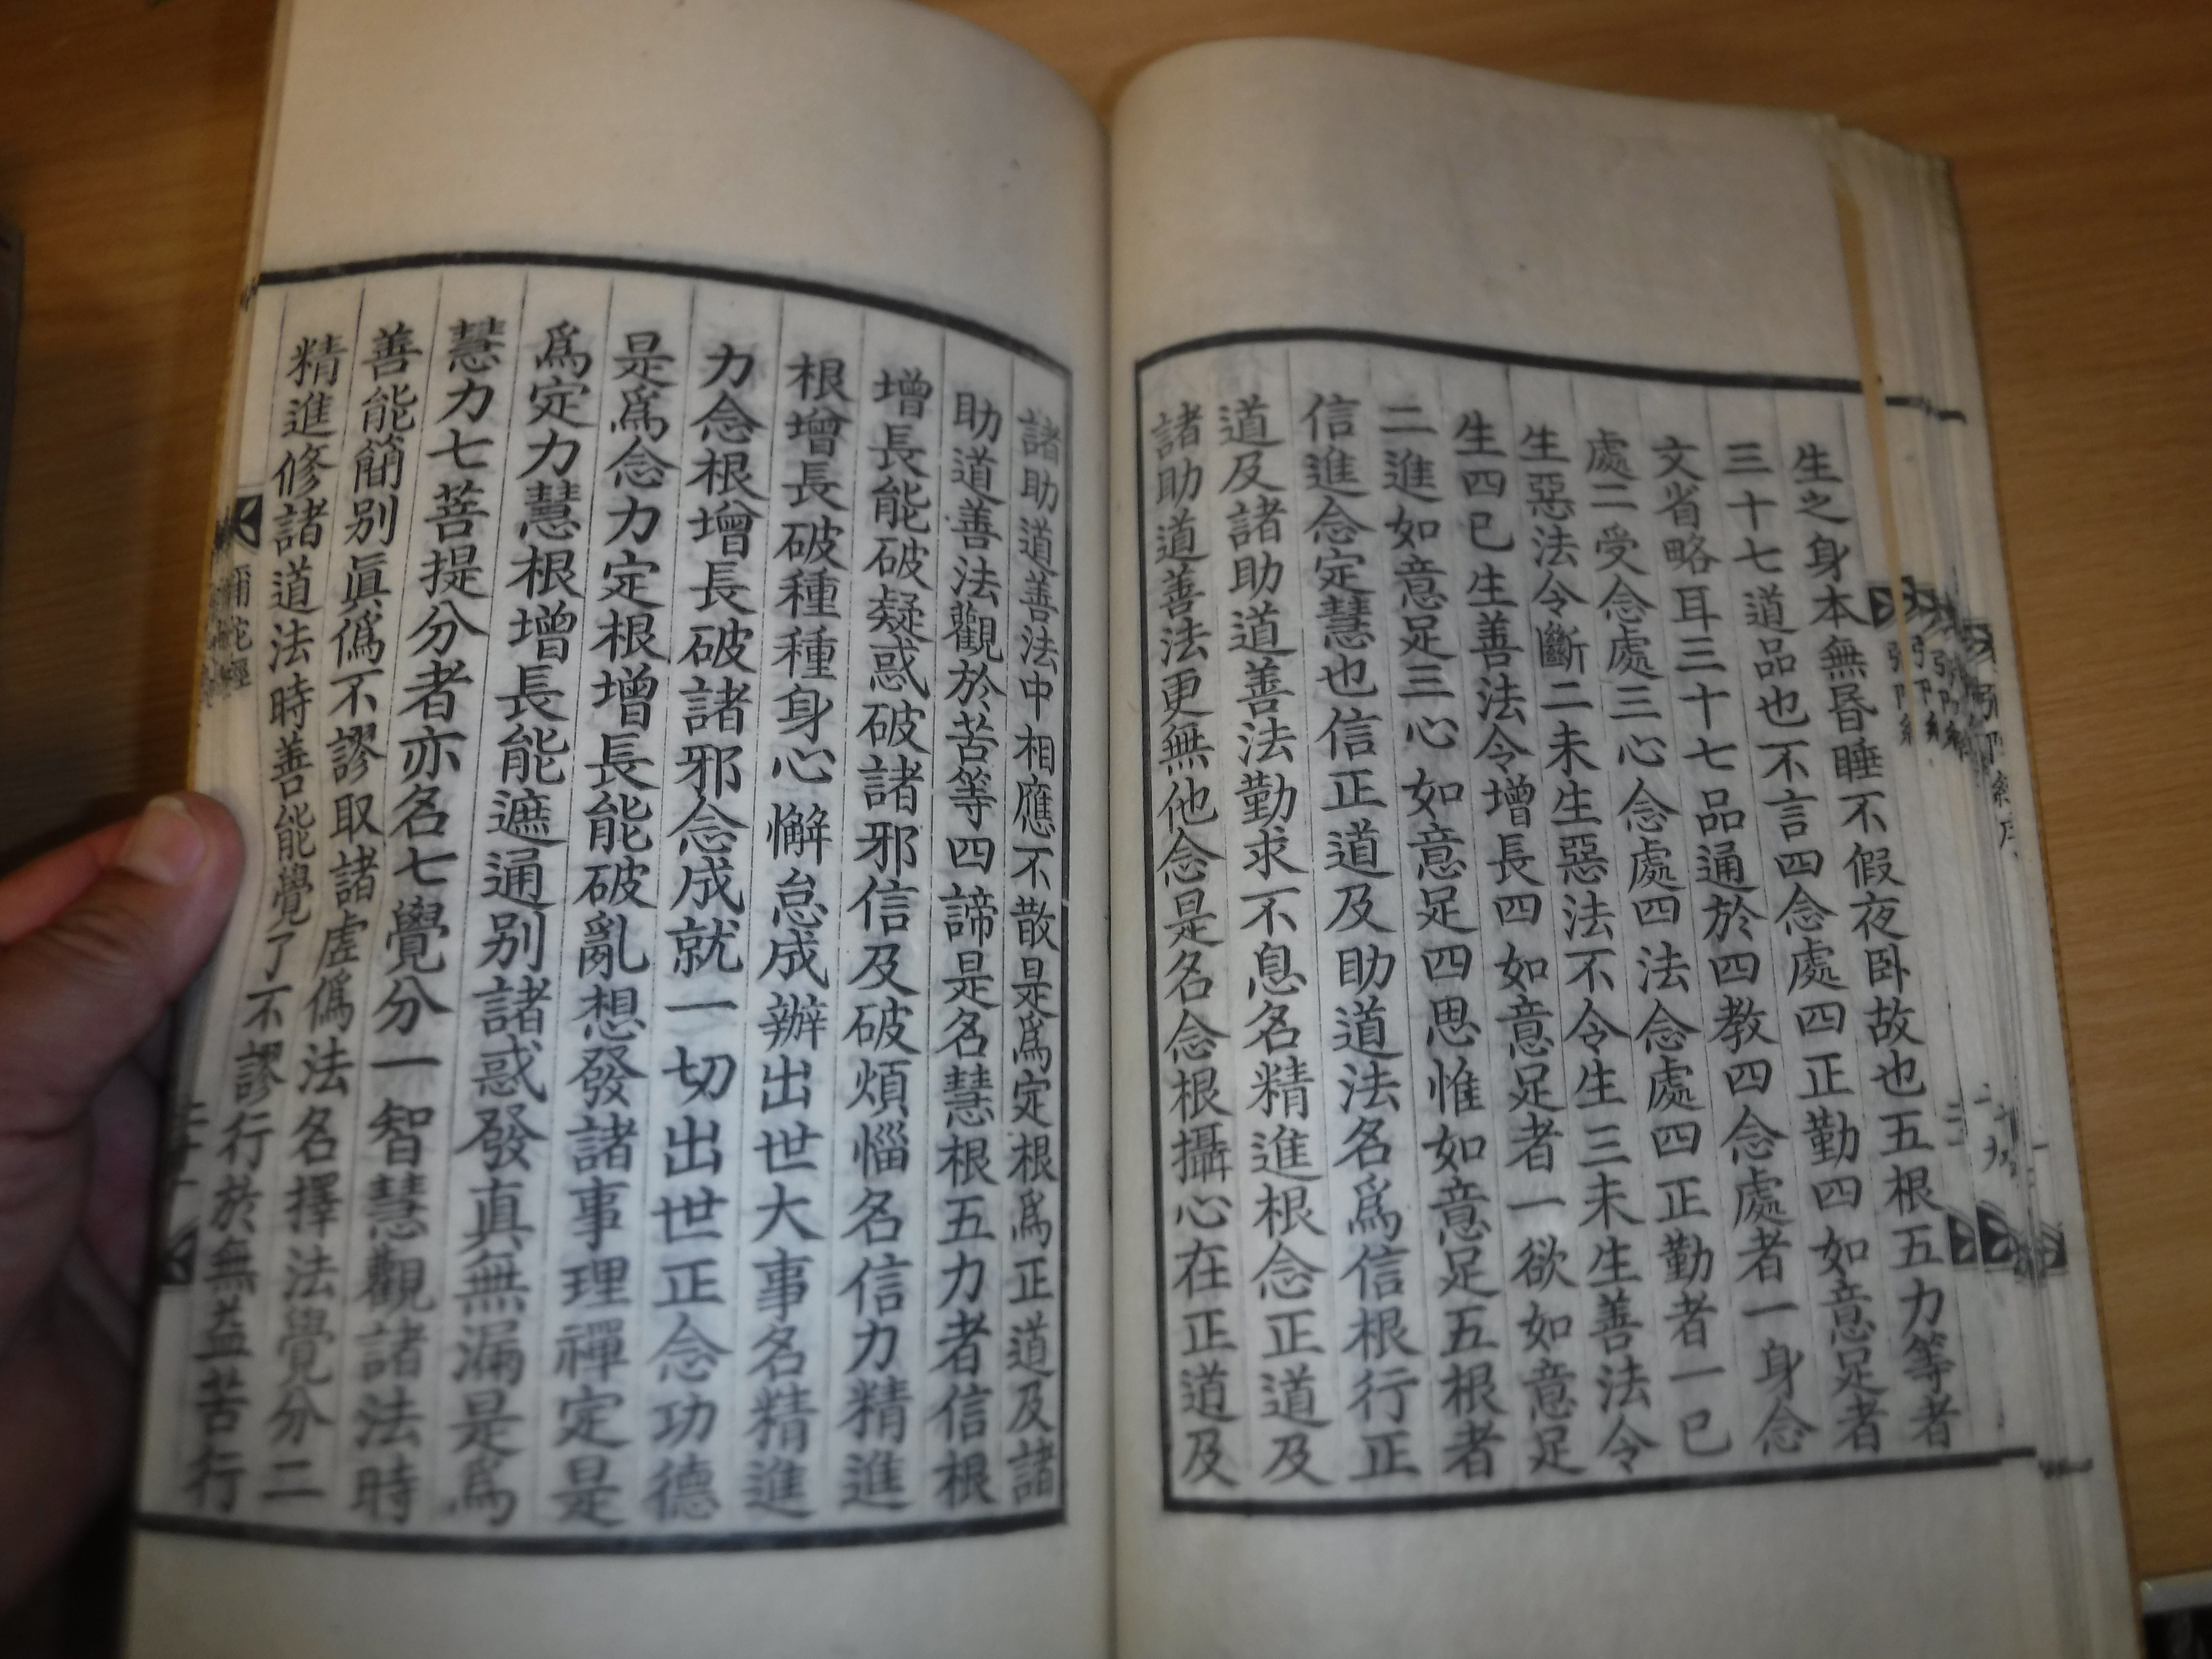 生之身本無昏睡不假夜卧故也五根五力等者
三十七道品也不言四念處四正勤四如意足者
文省略耳三十七品通於四教四念處者一身念
處二受念處三心念處四法念處四正勤者一已
生惡法令斷二未生惡法不令生三未生善法令
生四已生善法令增長四如意足者一欲如意足
二進如意足三心如意足四思惟如意足五根者
信進念定慧也信正道及助道法名爲信根行正
道及諸助道善法勤求不息名精進根念正道及
諸助道善法更無他念是名念根攝心在正道及
諸助道善法中相應不散是爲定根爲正道及諸
助道善法觀於苦等四諦是名慧根五力者信根
增長能破疑惑破諸邪信及破煩惱名信力精進
根增長破種種身心懈怠成辦出世大事名精進
力念根增長破諸邪念成就一切出世正念功德
是爲念力定根增長能破亂想發諸事理禪定是
爲定力慧根增長能遮通别諸惑發真無漏是爲
慧力七菩提分者亦名七覺分一智慧觀諸法時
善能簡别眞僞不謬取諸虛僞法名擇法覺分二
精進修諸道法時善能覺了不謬行於無益苦行
彌陀經